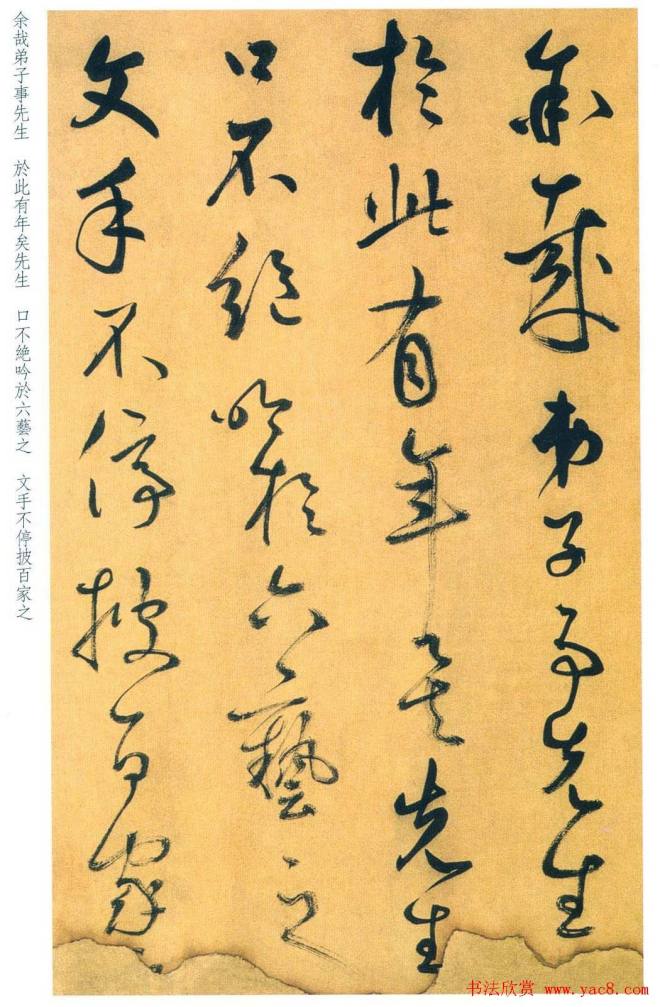 余哉弟子事先生
於此有年矣先生
口不絶吟於六藝之
文手不停披百家之
余哉弟子事先生 於此有年矣先生 口不絶吟於六藝之 文手不停披百家之
书法欣赏 www.yac8.com